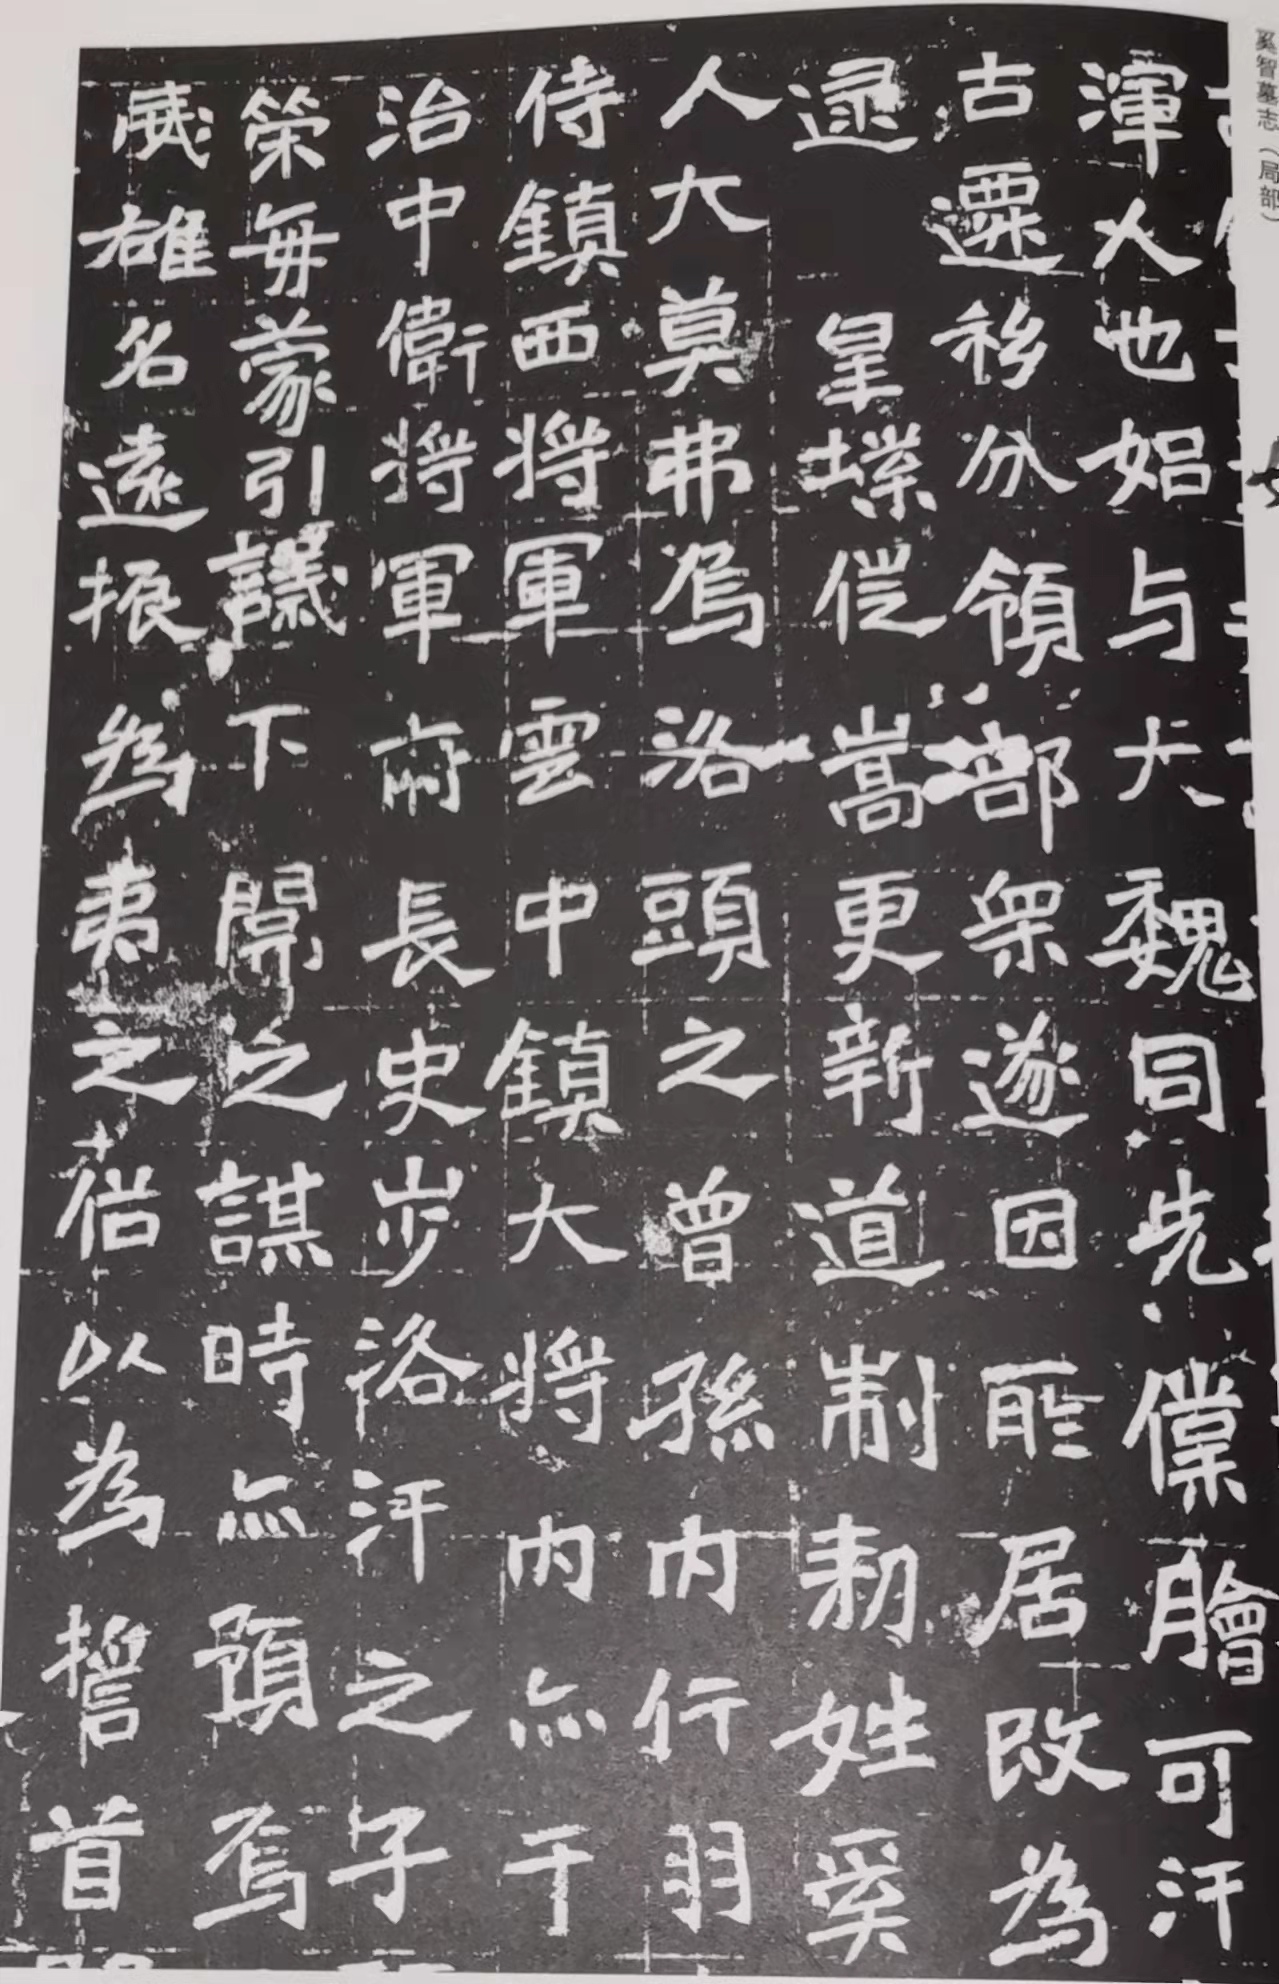 奚智墓志（局部）
渾人也始与大魏同先僕膾可汗
古遷移分領部衆遂因所居改為
逯皇業徙嵩更新道制勑姓奚
人大莫弗烏洛頭之曾孫内行羽
侍鎮西将軍雲中鎮大将内亦干
治中衛将軍府長史步洛汗之子
策每蒙引議下關之謀時亦預焉
威雄名遠振為夷之俗以為誓首